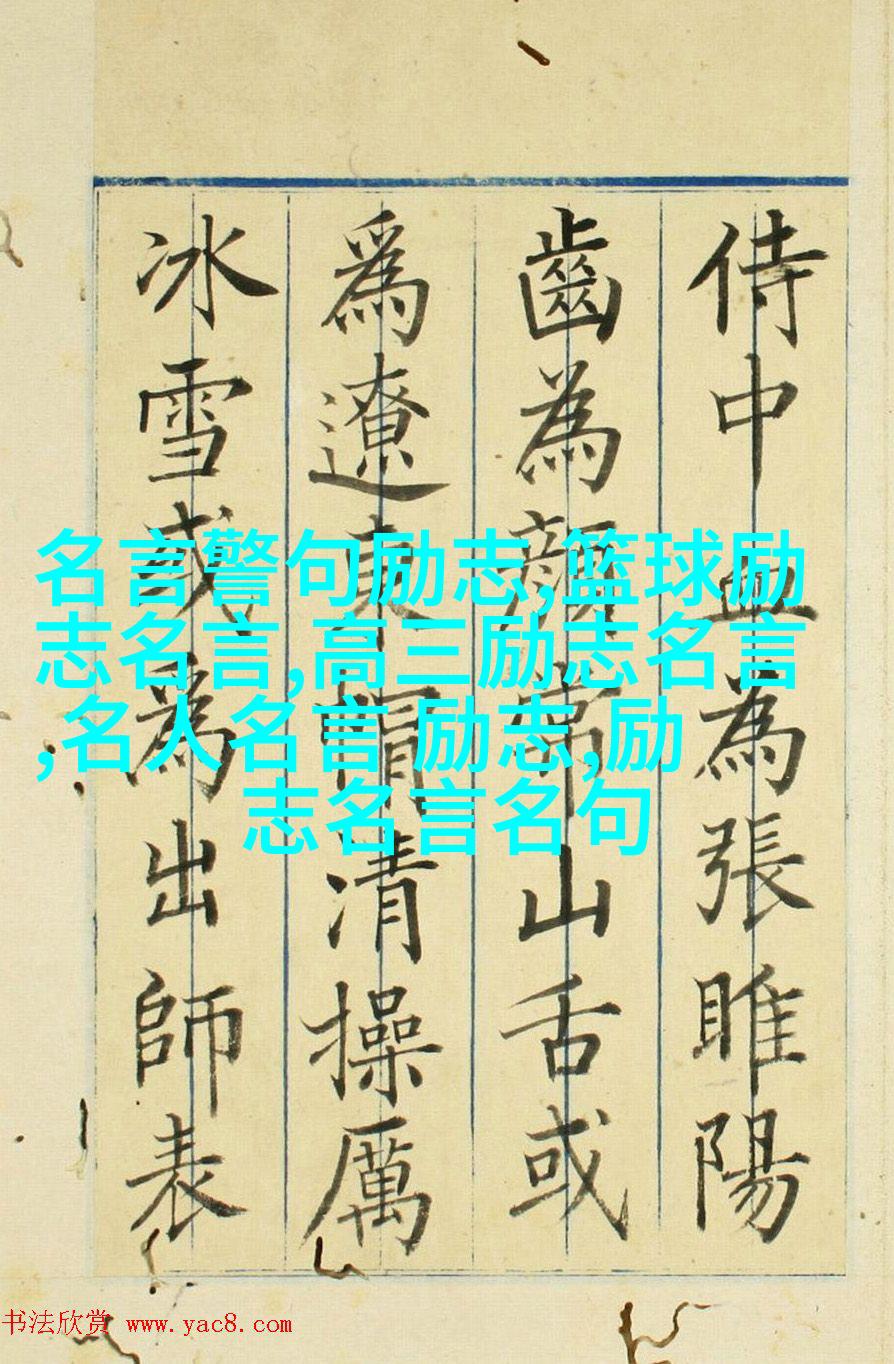 侍中血為張睢陽
齒為顏常山舌或
爲遼東帽清操厲
冰雪或爲出師表
名言警句励志,篮球励
志名言,高三励志名言
,名人名言 励志,励
志名言名句
书法欣赏 www.yac8.com